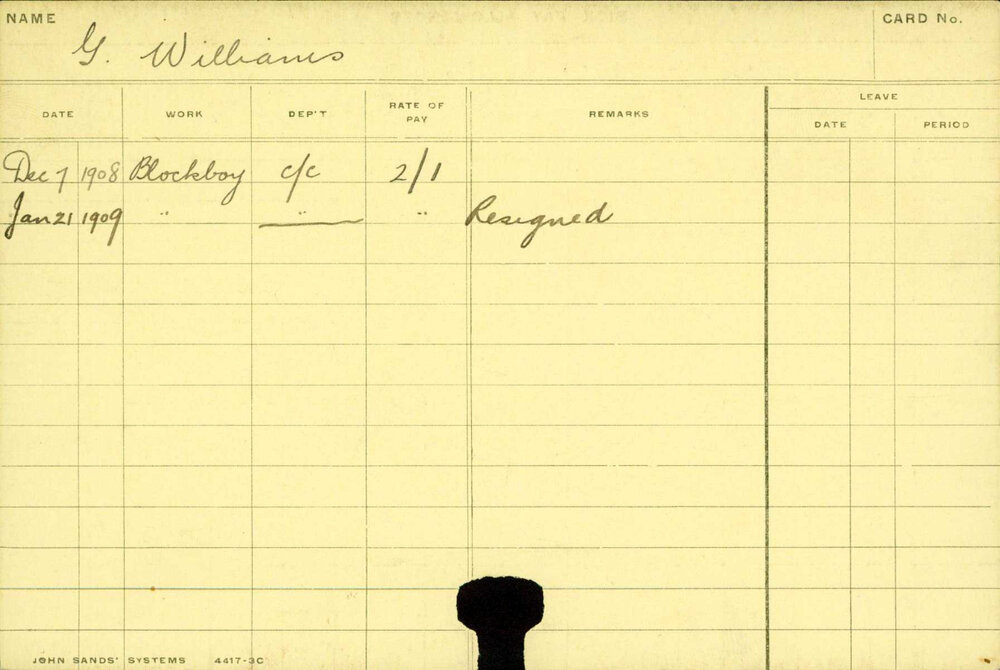 NAME G. Williams CARD No.
DATE WORK DEP'T RATE OF PAY REMARKS LEAVE
DATE PERIOD
Dec 7 1908 Blockboy c/c 2/1
Jan 21 1909 " " " Resigned
JOHN SANDS' SYSTEMS 4417-3C